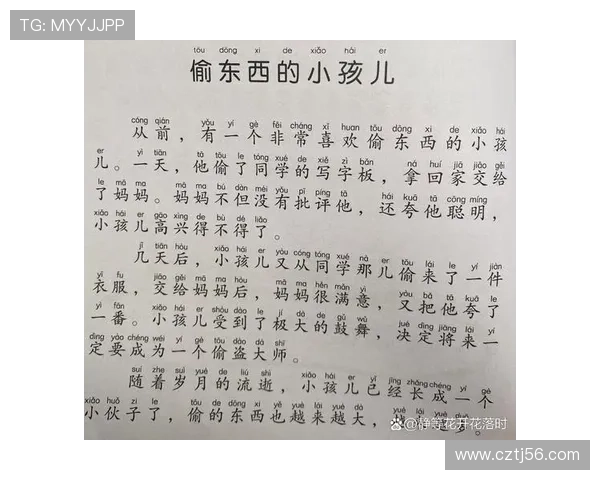 TG: MYYJJPP
tōu dōng xi de xiǎo hái er
偷东西的小孩儿
cóng qián yǒu yí gè fēi cháng xǐ huan tōu dōng xi de xiǎo hái
从前，有一个非常喜欢偷东西的小孩
er yì tiān tā tōu le tóng xué de xiě zì bǎn ná huí jiā jiāo gěi
儿。一天，他偷了同学的写字板，拿回家交给
le mā ma mā ma bú dàn méi yǒu pī píng tā hái kuā tā cōng míng
了妈妈。妈妈不但没有批评他，还夸他聪明，
xiǎo hái er gāo xìng de bù dé liǎo
小孩儿高兴得不得了。
jǐ tiān hòu xiǎo hái er yòu cóng tóng xué nà er tōu lái le yí jiàn
几天后，小孩儿又从同学那儿偷来了一件
yī fu jiāo gěi mā ma hòu mā ma hěn mǎn yì yòu bǎ tā kuā le
衣服，交给妈妈后，妈妈很满意，又把他夸了
yì fān xiǎo hái er shòu dào le jí dà de gǔ wǔ jué dìng jiāng lái yí
一番。小孩儿受到了极大的鼓舞，决定将来一
dìng yào chéng wéi yí gè tōu dào dà shī
定要成为一个偷盗大师。
suí zhe suì yuè de liú shì xiǎo hái er yǐ jīng zhǎng chéng yí gè
随着岁月的流逝，小孩儿已经长成一个
xiǎo huǒ zi le tōu de dōng xi yě yuè lái yuè dà yuè lái yuè duō
小伙子了，偷的东西也越来越大，越来越多。
静等花开花落时
www.cztj56.com